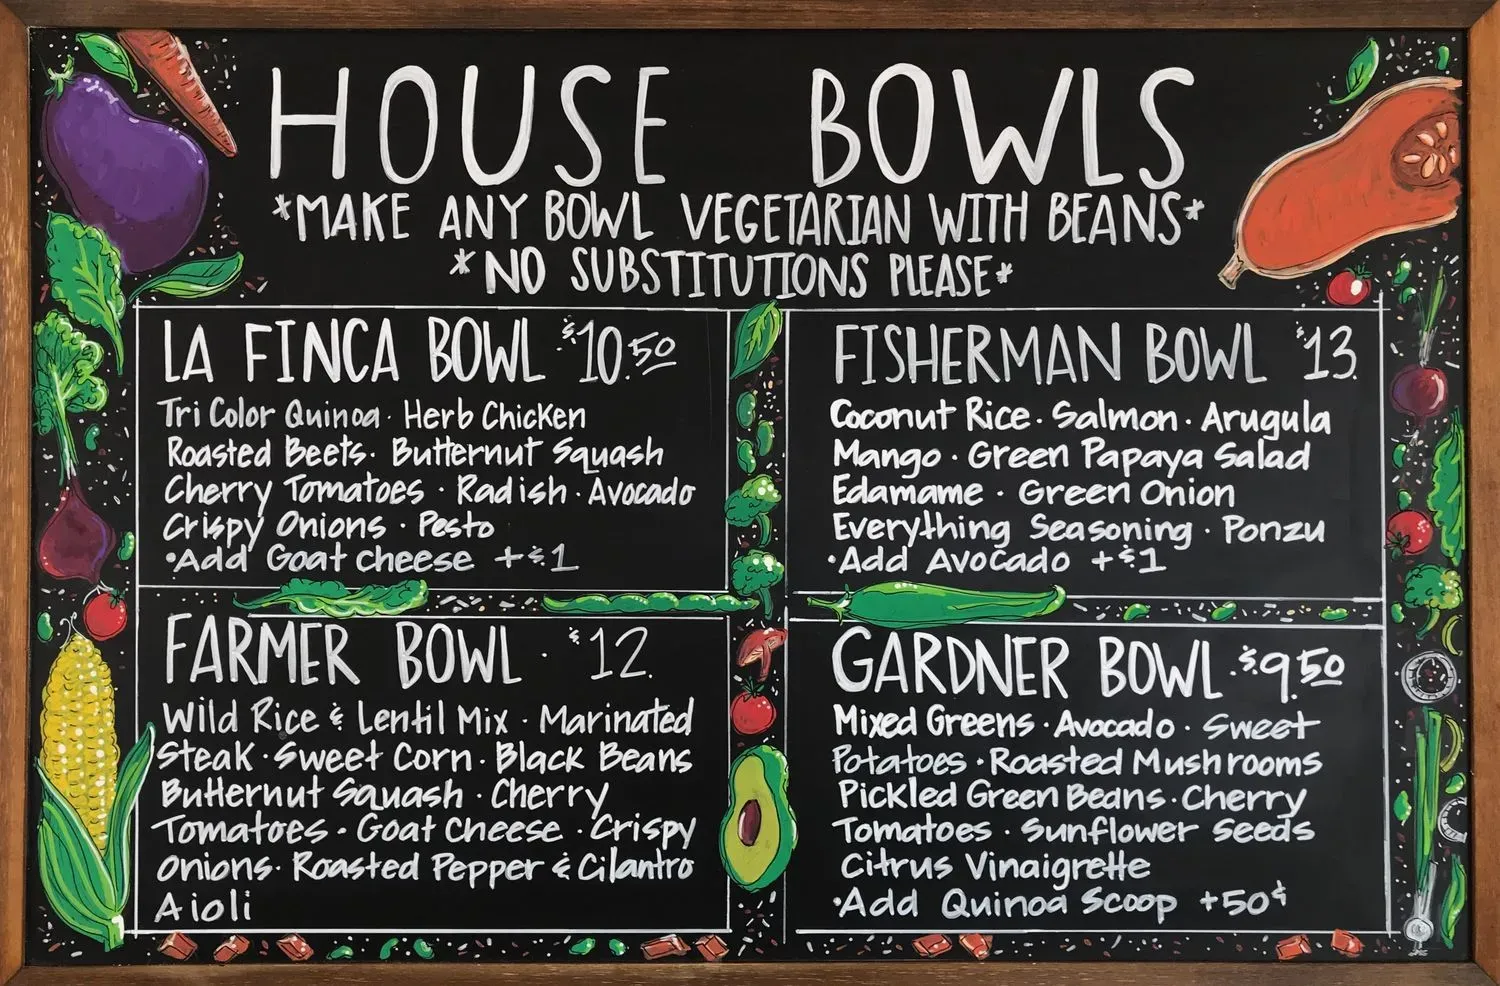 HOUSE BOWLS
*MAKE ANY BOWL VEGETARIAN WITH BEANS*
*NO SUBSTITUTIONS PLEASE*
LA FINCA BOWL $10.50
Tri Color Quinoa · Herb Chicken
Roasted Beets · Butternut Squash
Cherry Tomatoes · Radish · Avocado
Crispy Onions · Pesto
·Add Goat cheese +$1
FISHERMAN BOWL $13.
Coconut Rice · Salmon · Arugula
Mango · Green Papaya Salad
Edamame · Green Onion
Everything Seasoning · Ponzu
·Add Avocado +$1
FARMER BOWL · $12.
Wild Rice & Lentil Mix · Marinated
Steak · Sweet Corn · Black Beans
Butternut Squash · Cherry
Tomatoes · Goat Cheese · Crispy
Onions · Roasted Pepper & Cilantro
Aioli
GARDNER BOWL · $9.50
Mixed Greens · Avocado · Sweet
Potatoes · Roasted Mushrooms
Pickled Green Beans · Cherry
Tomatoes · Sunflower Seeds
Citrus Vinaigrette
·Add Quinoa Scoop +50¢